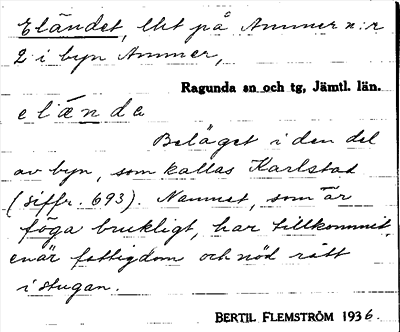 Eländet, lht på Ammer n:r
2 i byn Ammer,
Ragunda sn och tg, Jämtl. län.
elænda
Beläget i den del
av byn, som kallas Karlstad
(siffr. 693). Namnet, som är
föga brukligt, har tillkommit,
enär fattigdom och nöd rått
i stugan.
BERTIL FLEMSTRÖM 1936.